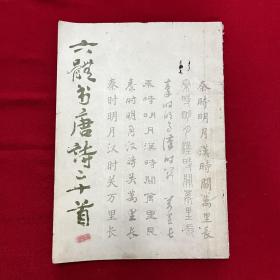 秦時明月漢時關萬里長
秦時明月漢時關萬里長
秦時明月漢時關萬里長
秦時明月漢時關萬里長
秦時明月漢時关萬里长
秦时明月汉时关万里长
六體书唐詩二十首